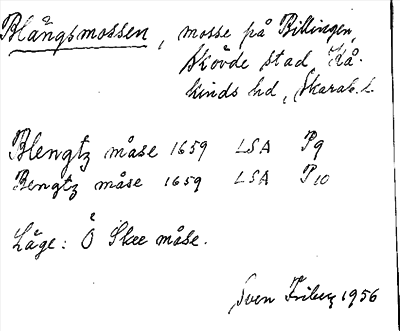 Blängsmossen, mosse på Billingen,
Skövde stad, Kå-
kinds hd, Skarab. l.
Blengtz måse 1659 LSA P9
Bengtz måse 1659 LSA P10
Läge: Å Skee måse.
Sven Friberg 1956